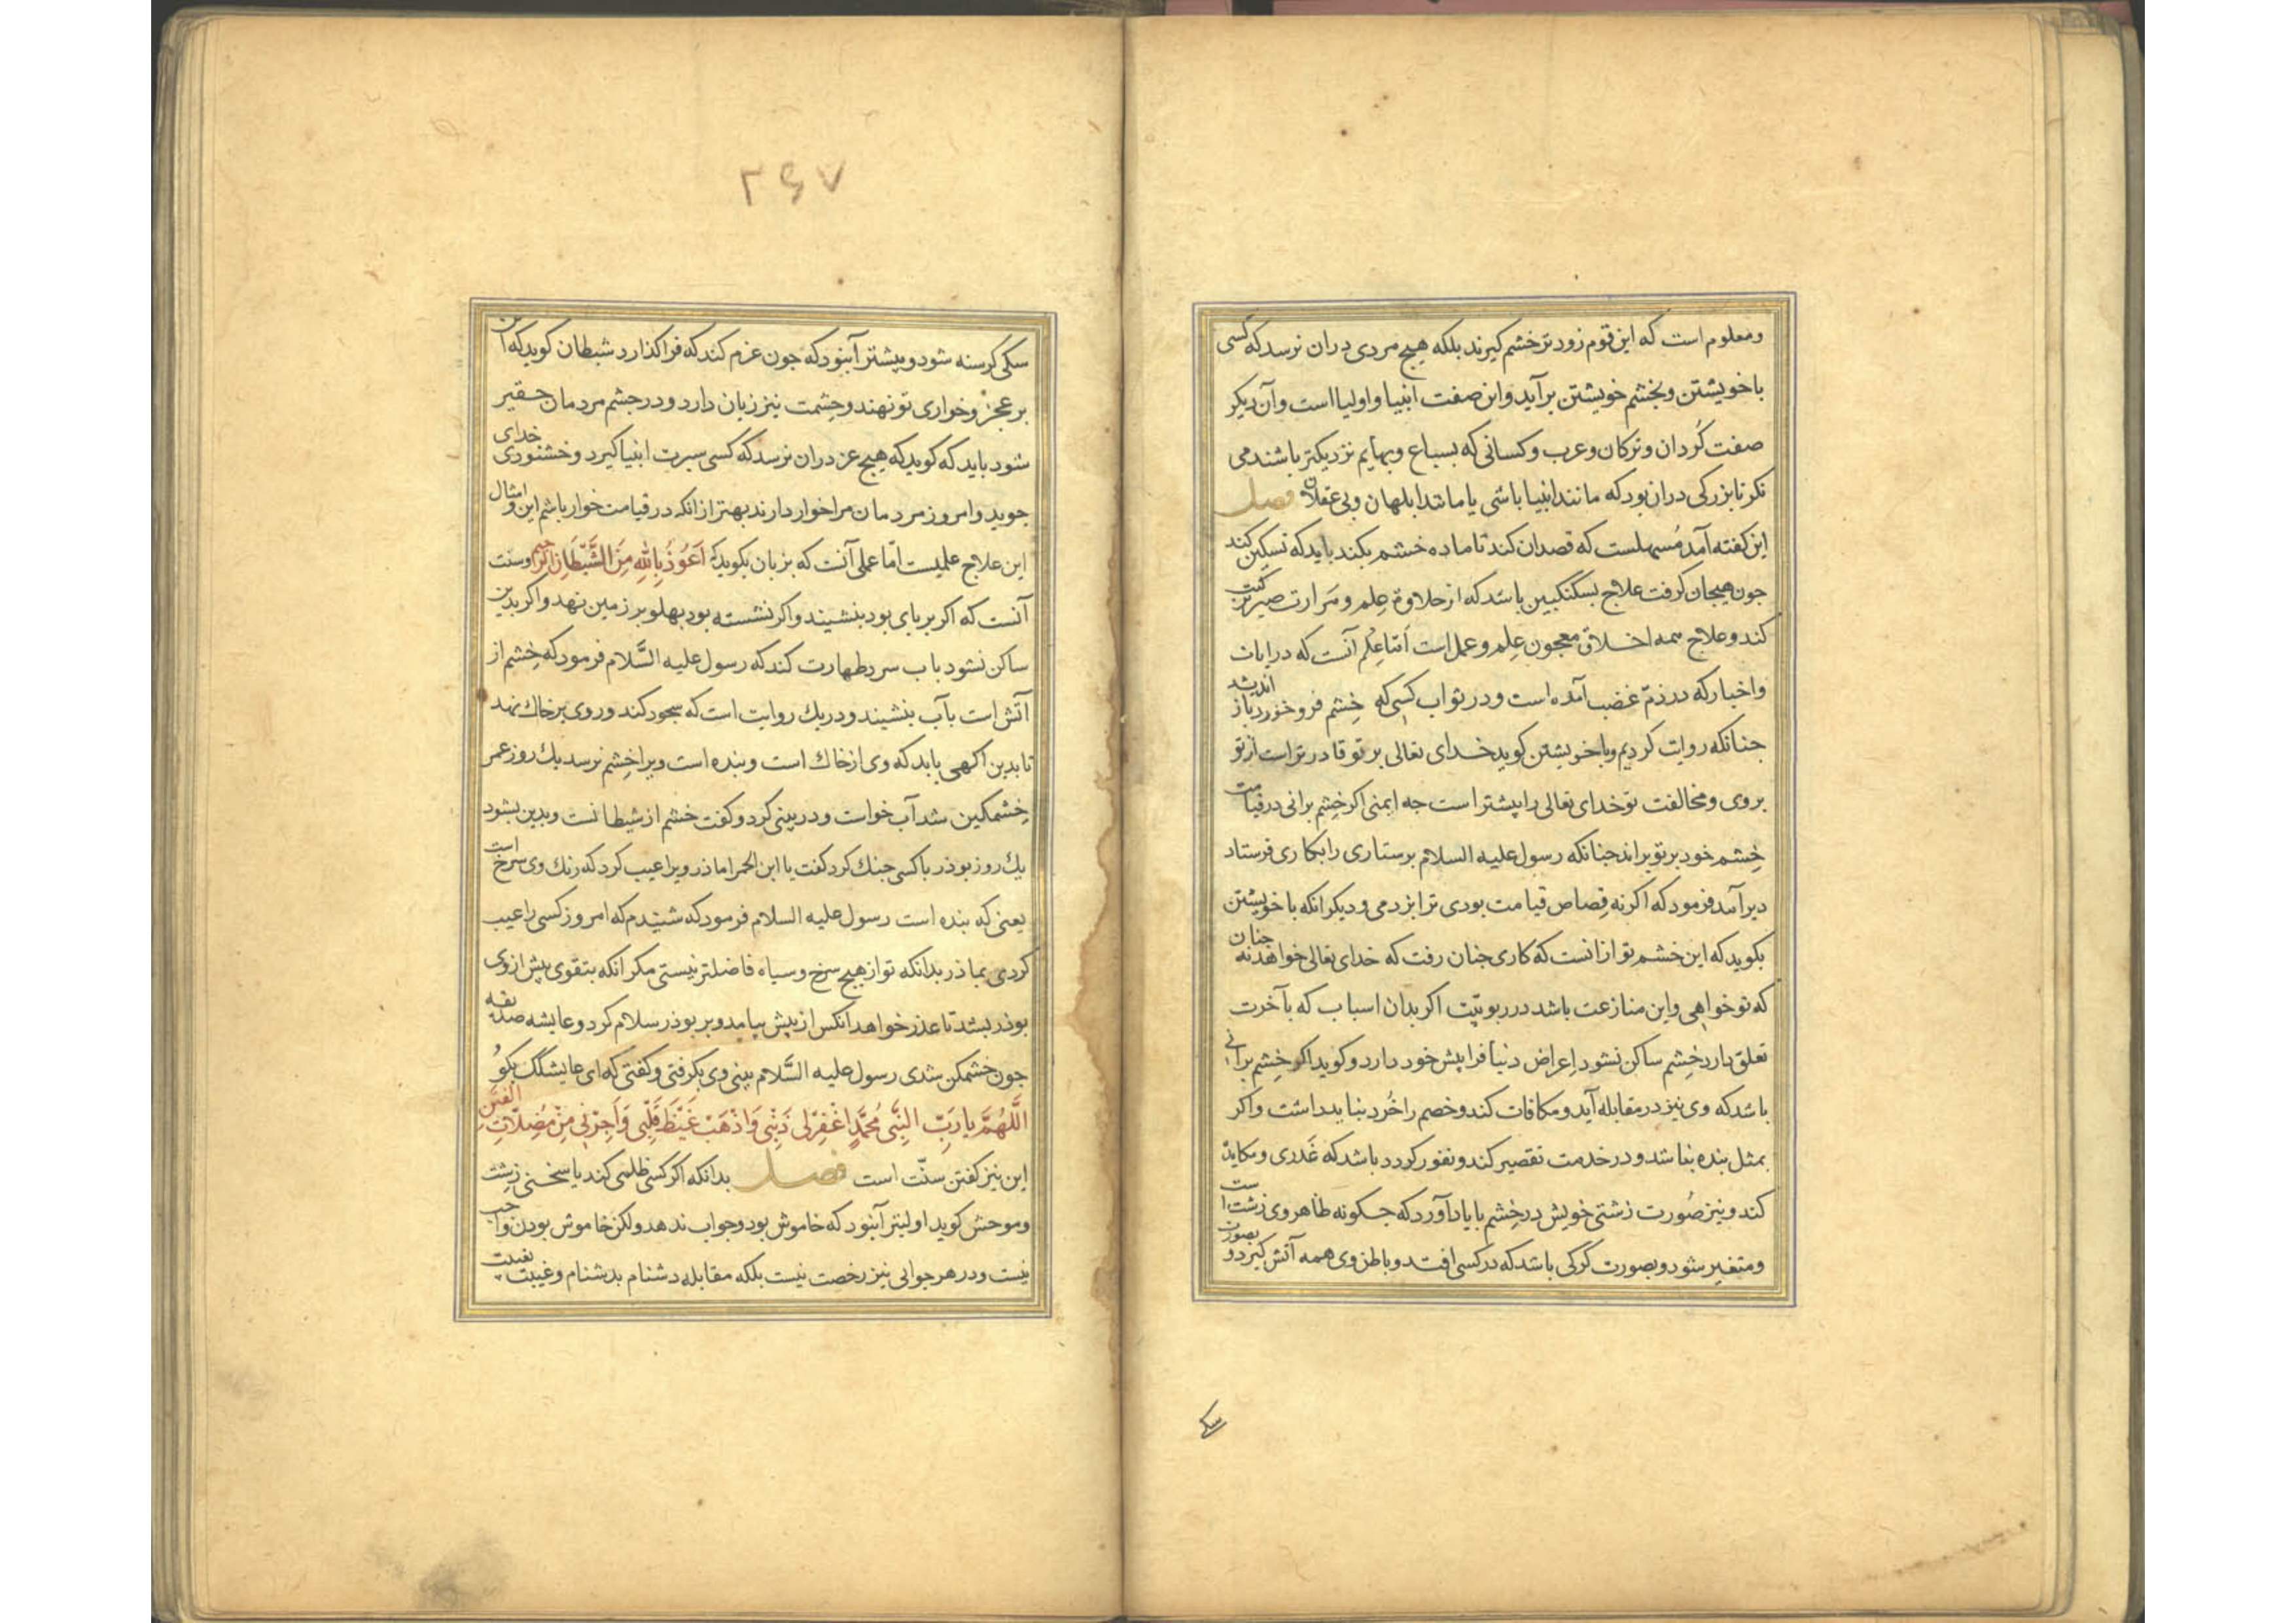 ومعلوم است که این قوم زود تر خشم کیرند بلکه هیچ مردی دران نرسد که کسی
با خویشتن و بخشم خویشتن برآید و این صفت انبیا و اولیا است وآن دیکر
صفت کُردان و ترکان و عرب و کسانی که بسباع و بهایم نزدیکتر باشند می
نکر تا بزرکی دران بود که مانند انبیا باشی یا مانند ابلهان و بی عقلان فصل
این کفته آمد مُسهلست که قصد ان کند تا ماده خشم بکند باید که تسکین کند
جون هیجان کرفت علاج بسکنکبین باشد که از حلاوة عِلم و مَرارت صبر ترکیب
کند و علاج همه اخلاق معجون عِلم و عمل است اَمّا عِلم آنست که در ایات
واخبار که در ذمّ غضب آمده است و در ثواب کسی که خِشم فرو خورد باز اندیشد
جنانکه روایت کردیم و با خویشتن کوید خدای تعالی بر تو قادر تر است از تو
بر وی و مخالفت تو خدای تعالی را پیشتر است جه ایمنی اکر خِشم برانی در قیامت
خِشم خود بر تو براند جنانکه رسول علیه السلام پرستاری را بکاری فرستاد
دیر آمد فرمود که اکر نه قِصاص قیامت بودی ترا بزدمی و دیکر انکه با خویشتن
بکوید که این خشم تو از انست که کاری جنان رفت که خدای تعالی خواهد نه جنان
که تو خواهی و این منازعت باشد در ربوبیّت اکر بدان اسباب که بآخرت
تعلق دارد خِشم ساکن نشود اِعراض دنیا فرا پیش خود دارد و کوید اکر خِشم برانی
باشد که وی نیز در مقابله آید و مکافات کند و خصم را خُرد بنباید داشت و اکر
بمثل بنده بنا شد و در خدمت تقصیر کند و نفور کردد باشد که غَدری و مکاید
کند و نیز صُورت زشتی خویش در خِشم با یاد آورد که جکونه ظاهر وی زشت است
و متغیر شود و بصورت کرکی باشد که در کسی افتد و باطن وی همه آتش کیرد و بصورت
سکی
۲۶۷
سکی کرسنه شود و بیشتر آنبود که جون عزم کند که فرا کذارد شیطان کوید که این
بر عجز و خواری تو نهند و حِشمت نیز زیان دارد و در جشم مردمان حقیر
شود باید که کوید که هیچ عز دران نرسد که کسی سیرت انبیا کیرد و خشنودی خدای
جوید و امروز مردمان مرا خوار دارند بهتر از انکه در قیامت خوار باشم این و امثال
این علاج علمیست امّا عملی آنست که بزبان بکوید که اَعُوذُ بِاللهِ مِنَ الشَّیطَانِ الرَّجیم و سنت
آنست که اکر بر پای بود بنشیند و اکر نشسته بود پهلو بر زمین نهد و اکر بدین
ساکن نشود باب سرد طهارت کند که رسول علیه السَّلام فرمود که خِشم از
آتش است بآب بنشیند و در یك روایت است که سجود کند و روی بر خاك نهد
تا بدین اکهی یابد که وی از خاك است و بنده است ویرا خِشم نرسد یك روز عمر
خِشمکین شد آب خواست و در بینی کرد و کفت خشم از شیطانست و بدین بشود
یك روز بوذر با کسی جنك کرد کفت یا ابن الحمرا مادر ویرا عیب کرد که رنك وی سرخ است
یعنی که بنده است رسول علیه السلام فرمود که شنیدم که امروز کسی را عیب
کردی بمادر بدانکه تو از هیچ سرخ و سیاه فاضلتر نیستی مکر انکه بتقوی پیش از وی
بوذر بشد تا عذر خواهد انکس از پیش بیامد و بر بوذر سلام کرد و عایشه صدیقه
جون خشمکن شدی رسول علیه السَّلام بینی وی بکرفتی و کفتی که ای عایشکك بکوُ
اَللّٰهُمَّ یا رَبّ النِّبی مُحَمَّدٍ اغْفِرْلی ذَنْبی وَاذْهَبْ غَیْظَ قَلْبی وَاَجِرْنی مِنْ مُضِلّاتِ الفِتَن
این نیز کفتن سنّت است فصل بدانکه اکر کسی ظلمی کند یا سخنی زشت
و موحش کوید اولیتر آنبود که خاموش بود و جواب ندهد ولکن خاموش بودن واجب
نیست و در هر جوابی نیز رخصت نیست بلکه مقابله دشنام بدشنام و غیبت بغیبت